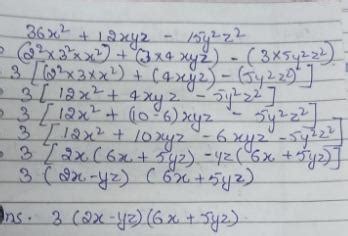 36x² + 12xyz - 15y²z²
(2²×3²×x²) + (3×4xyz) - (3×5y²z²)
3 [(2²×3×x²) + (4xyz) - (5y²z²)]
3 [12x² + 4xyz - 5y²z²]
3 [12x² + (10-6)xyz - 5y²z²]
3 [12x² + 10xyz - 6xyz - 5y²z²]
3 [2x(6x + 5yz) - yz(6x + 5yz)]
3 (2x-yz) (6x + 5yz)
ns. 3 (2x-yz)(6x + 5yz).